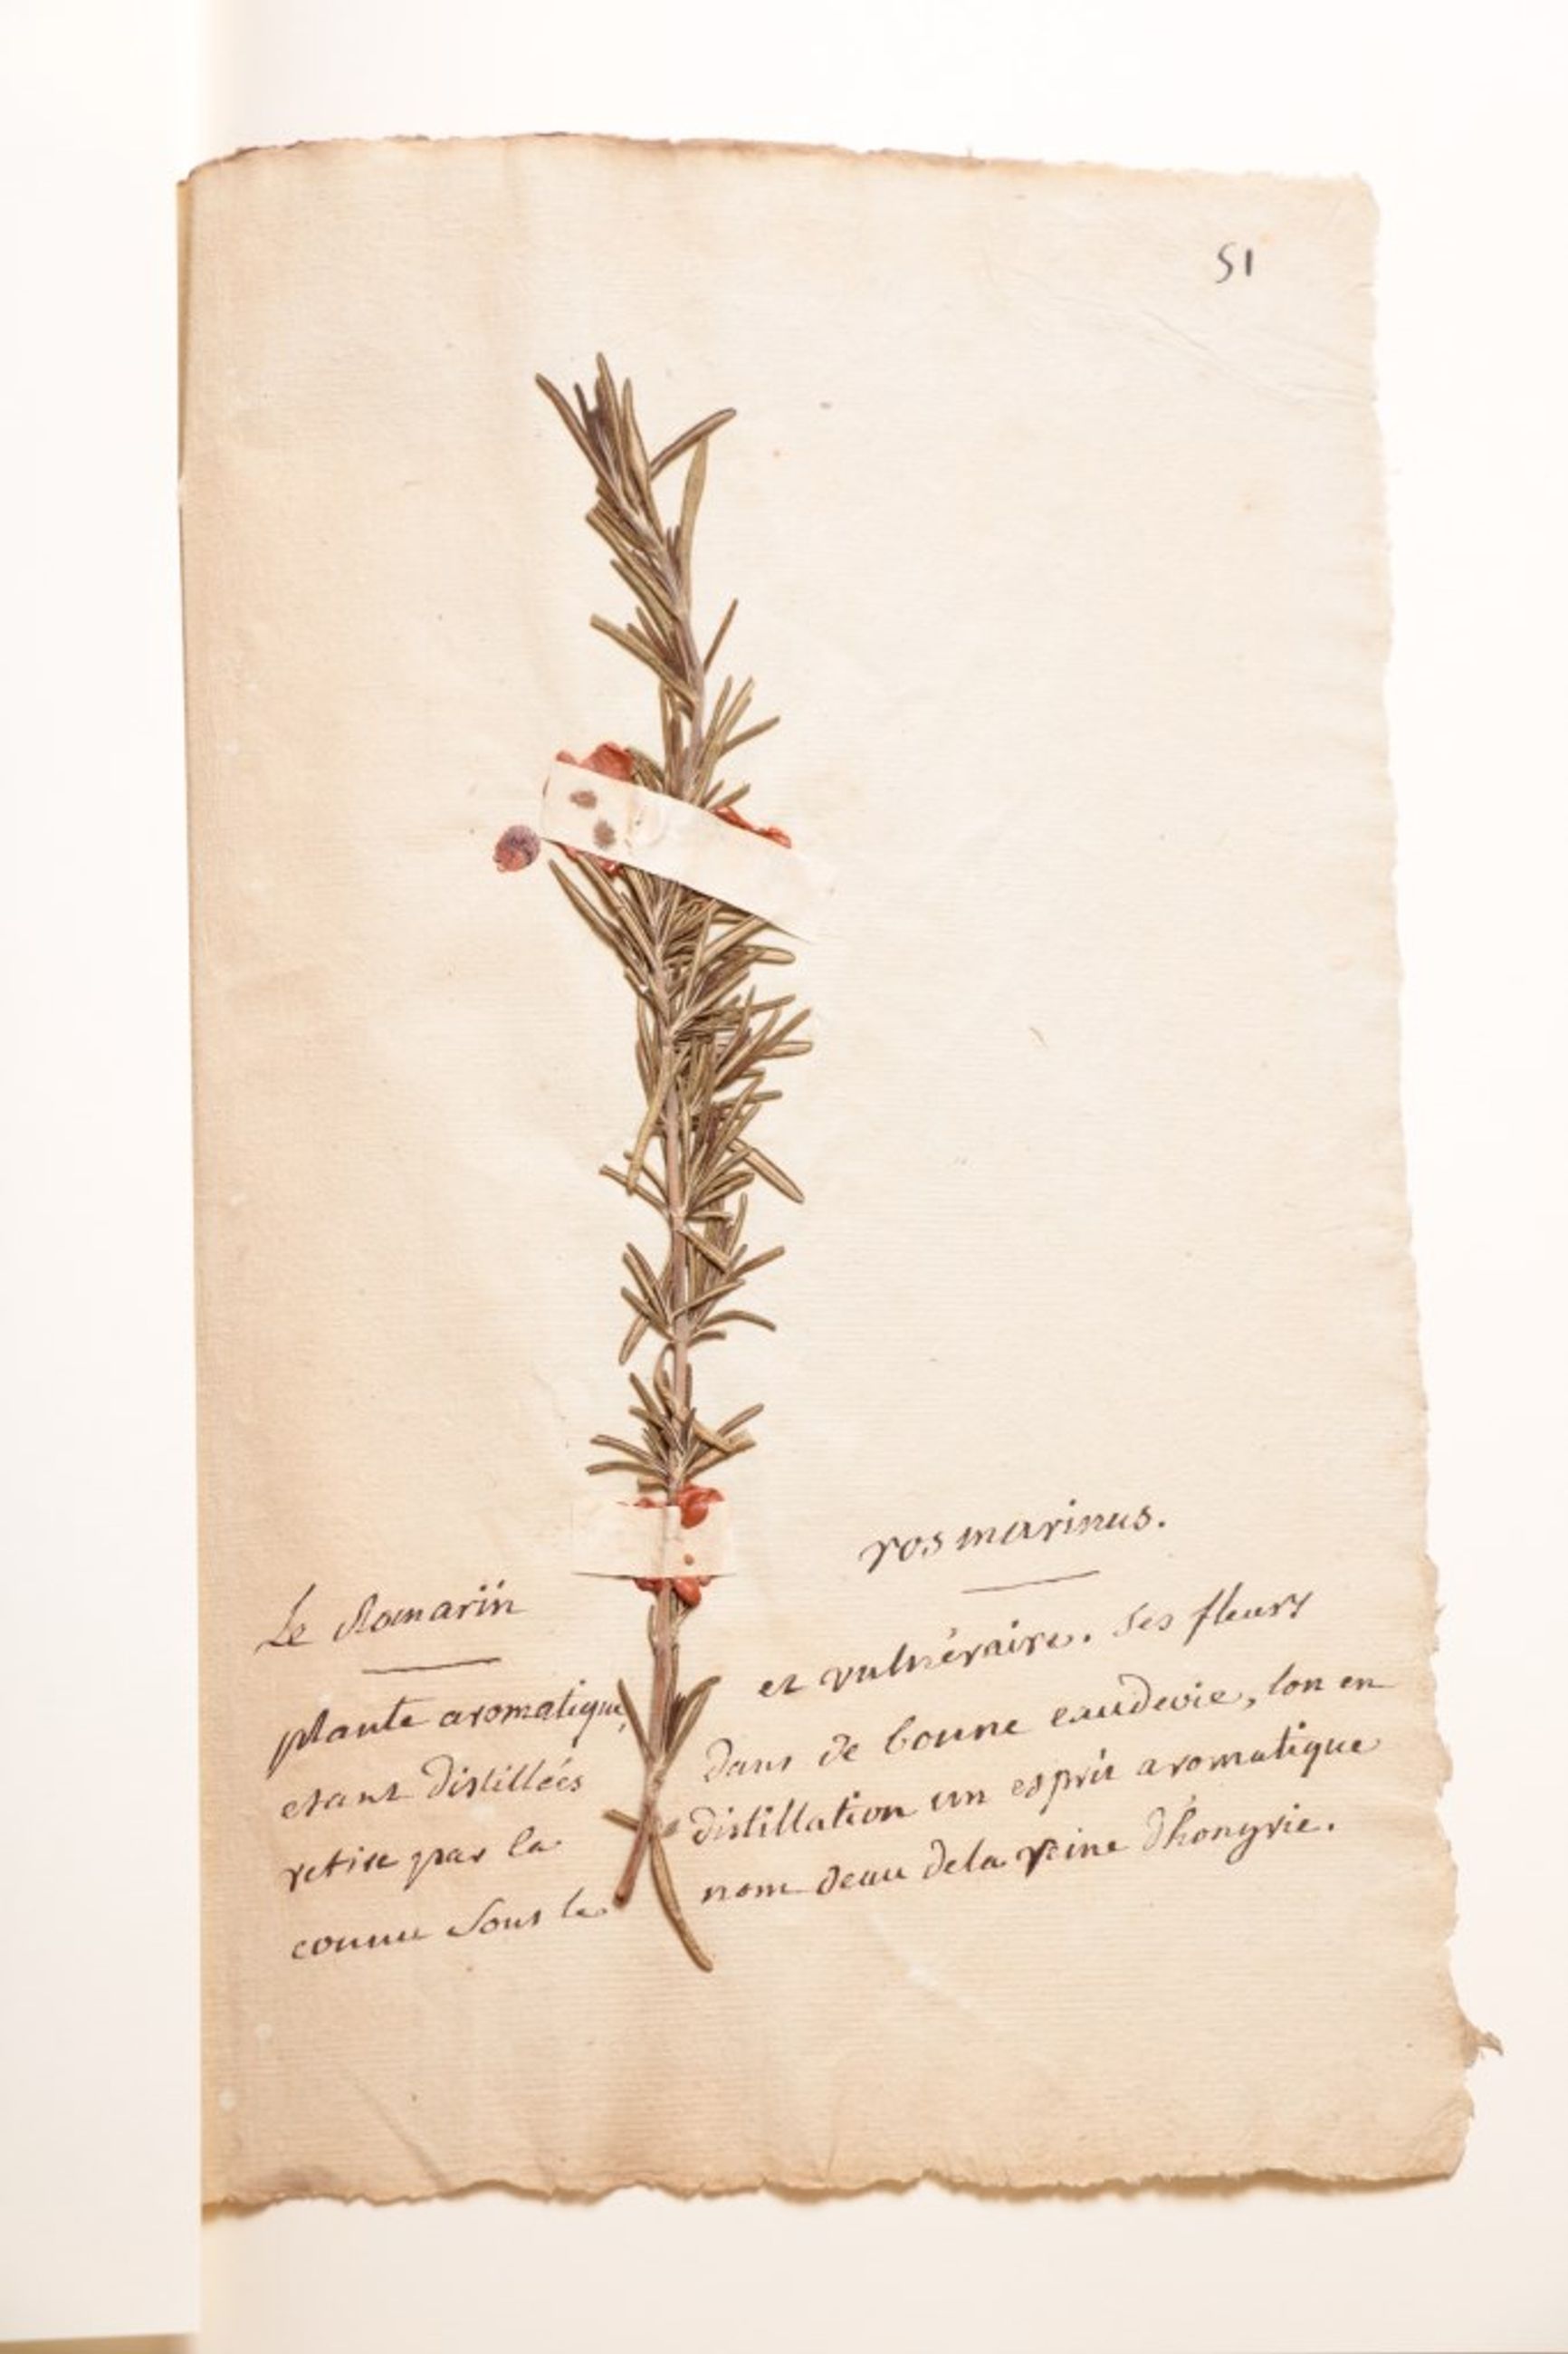 51
Le Romarin ros marinus.
plante aromatique, et vulnéraire. Ses fleurs
etant distillées dans de bonne eaudevie, lon en
retire par la distillation un esprit aromatique
connu Sous le nom deau dela reine d'hongrie.